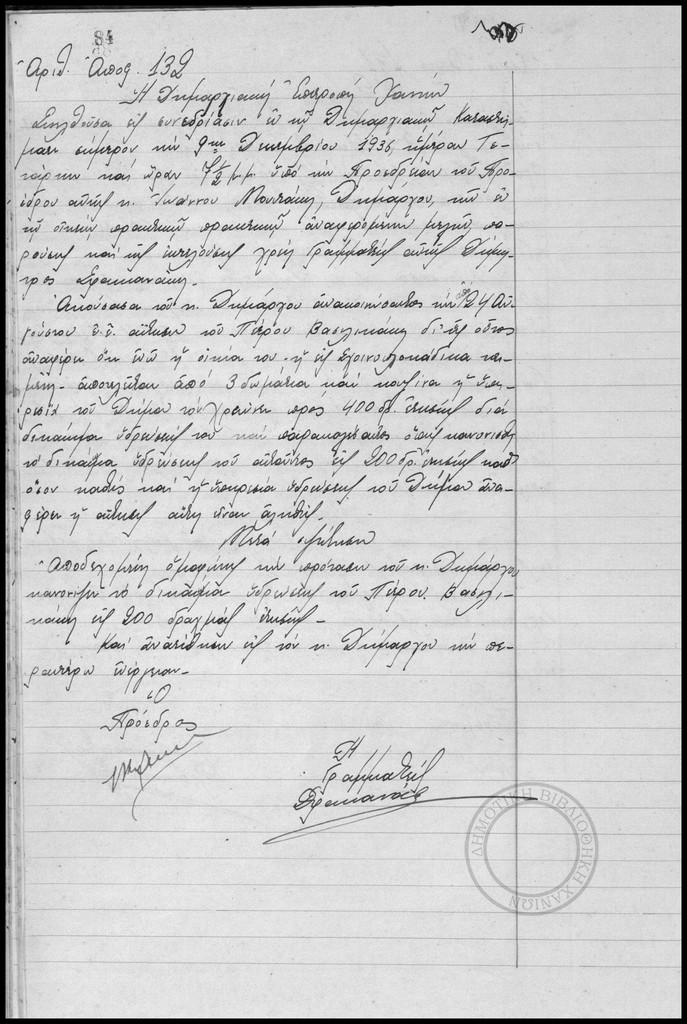 84
Ἀριθ. Ἀποφ. 132
Ἡ Δημαρχιακή Ἐπιτροπή Χανίων
Συνελθοῦσα εἰς συνεδρίασιν ἐν τῇ Δημαρχιακῷ Καταστή-
ματι σήμερον τήν 9ην Δεκεμβρίου 1936, ἡμέραν Τε-
τάρτην καί ὥραν 7½ μ.μ. ὑπό τήν Προεδρείαν τοῦ Προ-
έδρου αὐτῆς κ. Ἰωάννου Μουντάκη, Δημάρχου, τῶν ἐν
τῷ πρακτικῷ ἀναφερομένων μελῶν, πα-
ρούσης καί τῆς ἐκτελούσης χρέη Γραμματέως αὐτῆς Δήμη-
τρος
Ἀκούσασα τοῦ κ. Δημάρχου ἀνακοινώσαντος τήν ἀπό 24 Αὐ-
γούστου ἐ.ἔ. αἴτησιν τοῦ Πέτρου Βασιλικάκη δι' ἧς οὗτος
ἀναφέρει ὅτι ἐνῷ ἡ οἰκία του ἡ εἰς κει-
μένη ἀποτελεῖται ἀπό 3 δωμάτια καί κουζίνα ἡ ὑπη-
ρεσία τοῦ Δήμου τόν χρεώνει πρός 400 δρ. ἐτησίως διά
δικαίωμα ὑδρεύσεώς του καί παρακαλεῖ ὅπως κανονισθῇ
τό δικαίωμα ὑδρεύσεως τοῦ αἰτοῦντος εἰς 200 δρ. ἐτησίως καθ'
ὅσον καθώς καί ἡ ὑπηρεσία ὑδρεύσεως τοῦ Δήμου ἀνα-
φέρει ἡ αἴτησις αὕτη εἶναι ἀληθής.
Μετά συζήτησιν
Ἀποδεχομένη ὁμοφώνως τήν πρότασιν τοῦ κ. Δημάρχου
κανονίζει τό δικαίωμα ὑδρεύσεως τοῦ Πέτρου Βασιλι-
κάκη εἰς 200 δραχμάς ἐτησίως.-
Καί ἀνατίθησιν εἰς τόν κ. Δήμαρχον τήν πε-
ραιτέρω ἐνέργειαν.-
Ὁ
Πρόεδρος
Ἡ
Γραμματεύς
ΔΗΜΟΤΙΚΗ ΒΙΒΛΙΟΘΗΚΗ ΧΑΝΙΩΝ